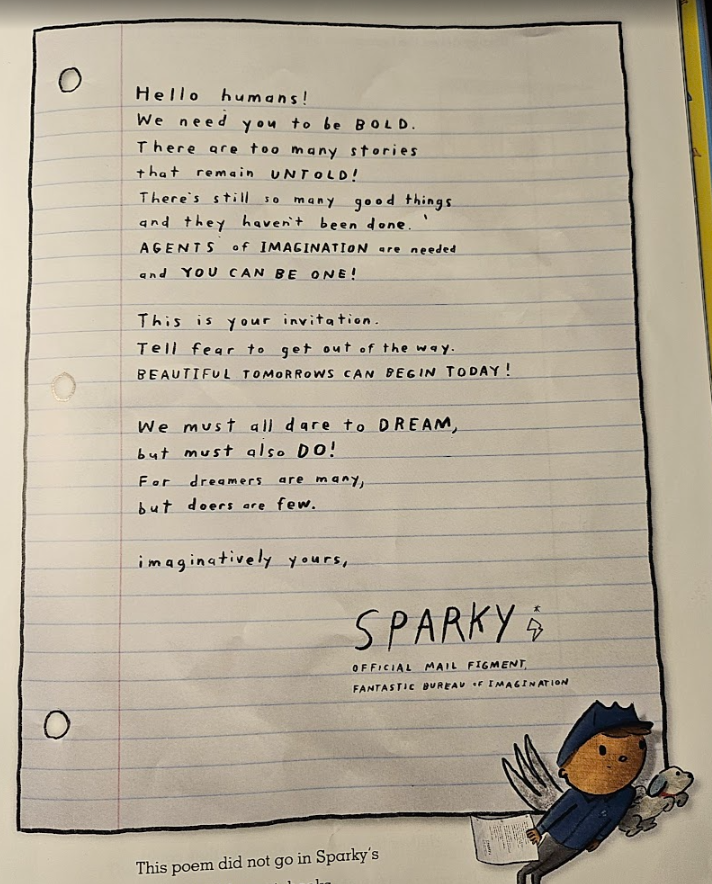 Hello humans!
We need you to be BOLD.
There are too many stories
that remain UNTOLD!
There's still so many good things
and they haven't been done.
AGENTS of IMAGINATION are needed
and YOU CAN BE ONE!
This is your invitation.
Tell fear to get out of the way.
BEAUTIFUL TOMORROWS CAN BEGIN TODAY!
We must all dare to DREAM,
but must also DO!
For dreamers are many,
but doers are few.
imaginatively yours,
SPARKY
OFFICIAL MAIL FIGMENT
FANTASTIC BUREAU OF IMAGINATION
This poem did not go in Sparky's